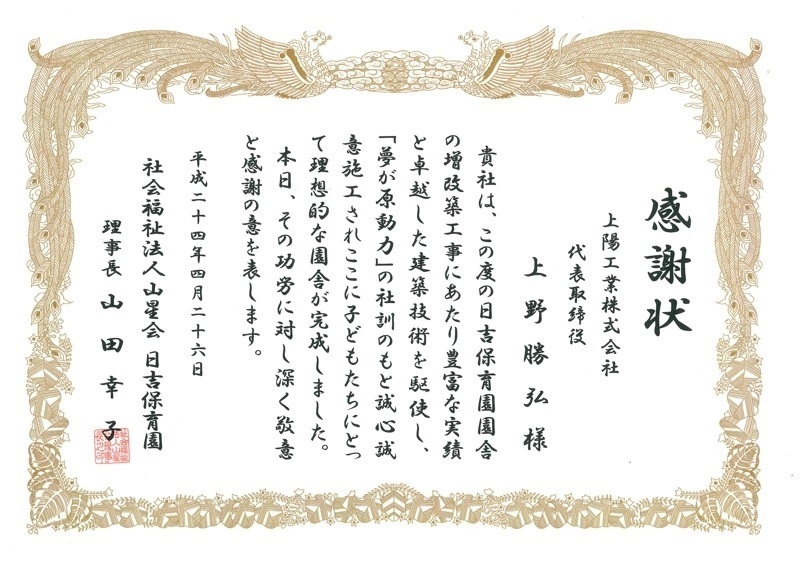 感謝状
上陽工業株式会社
代表取締役
上野勝弘様
貴社は、この度の日吉保育園園舎
の増改築工事にあたり豊富な実績
と卓越した建築技術を駆使し、
「夢が原動力」の社訓のもと誠心誠
意施工されここに子どもたちにとっ
て理想的な園舎が完成しました。
本日、その功労に対し深く敬意
と感謝の意を表します。
平成二十四年四月二十六日
社会福祉法人山星会 日吉保育園
理事長 山田幸子